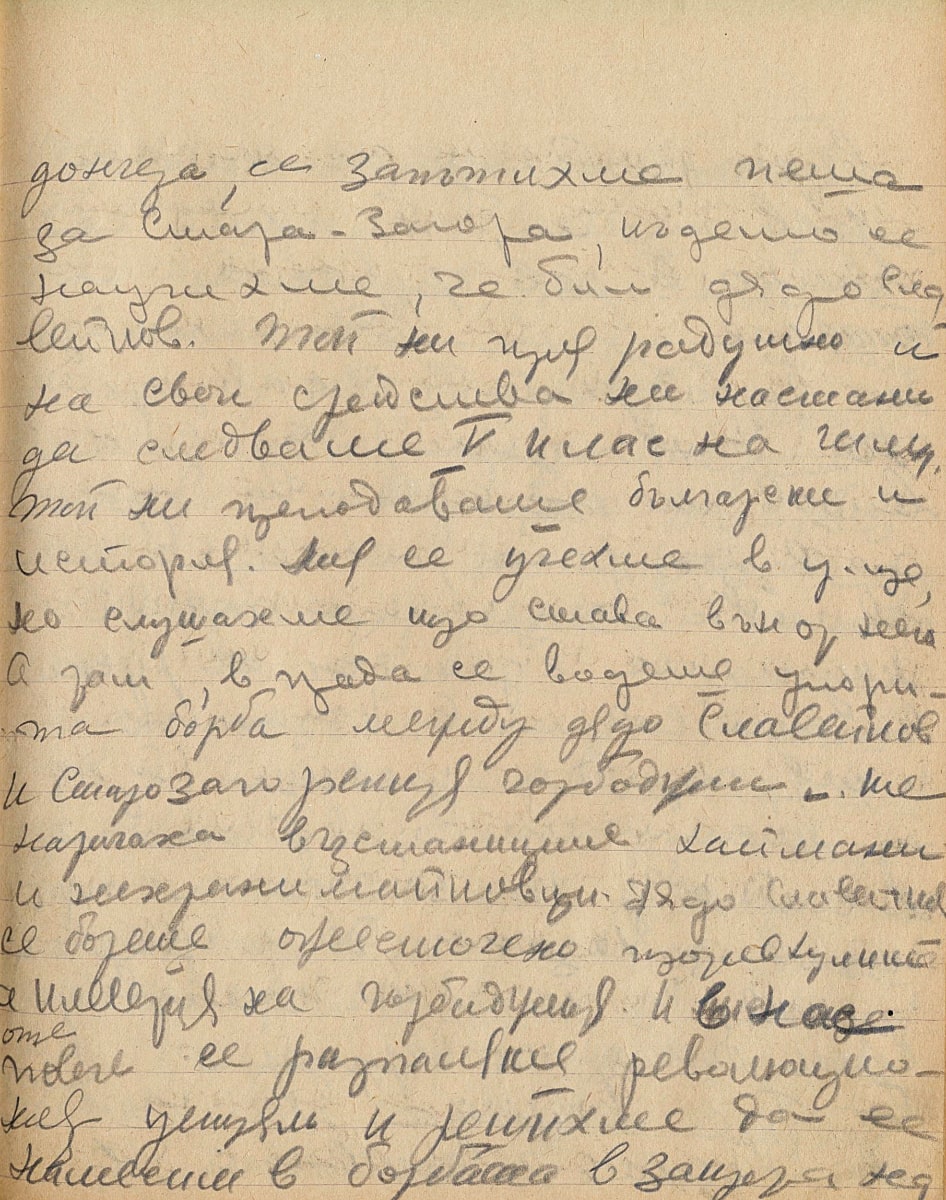 донгеза, се запътихме пеша
за Стара-Загора, където се
научихме, че бил дядо Сла
вейков. Той ни прия радушно и
на свои средства ни настани
да следваме V клас на гимн.
Той ни преподаваше български и
история. Ние се учехме в у-ще,
но слушахме що става вън от него
А там, в града се водеше упори-
та борба между дядо Славейков
и Старозагорския чорбаджии. Те
наричаха въстаниците хаймани
и нехранимайковци. Дядо Славейков
се бореше ожесточено против хулите
и клевети на чорбаджия. И в нас
още
повече се разпаляше революцио-
ния и решихме да се
намесим в борбата в защита на